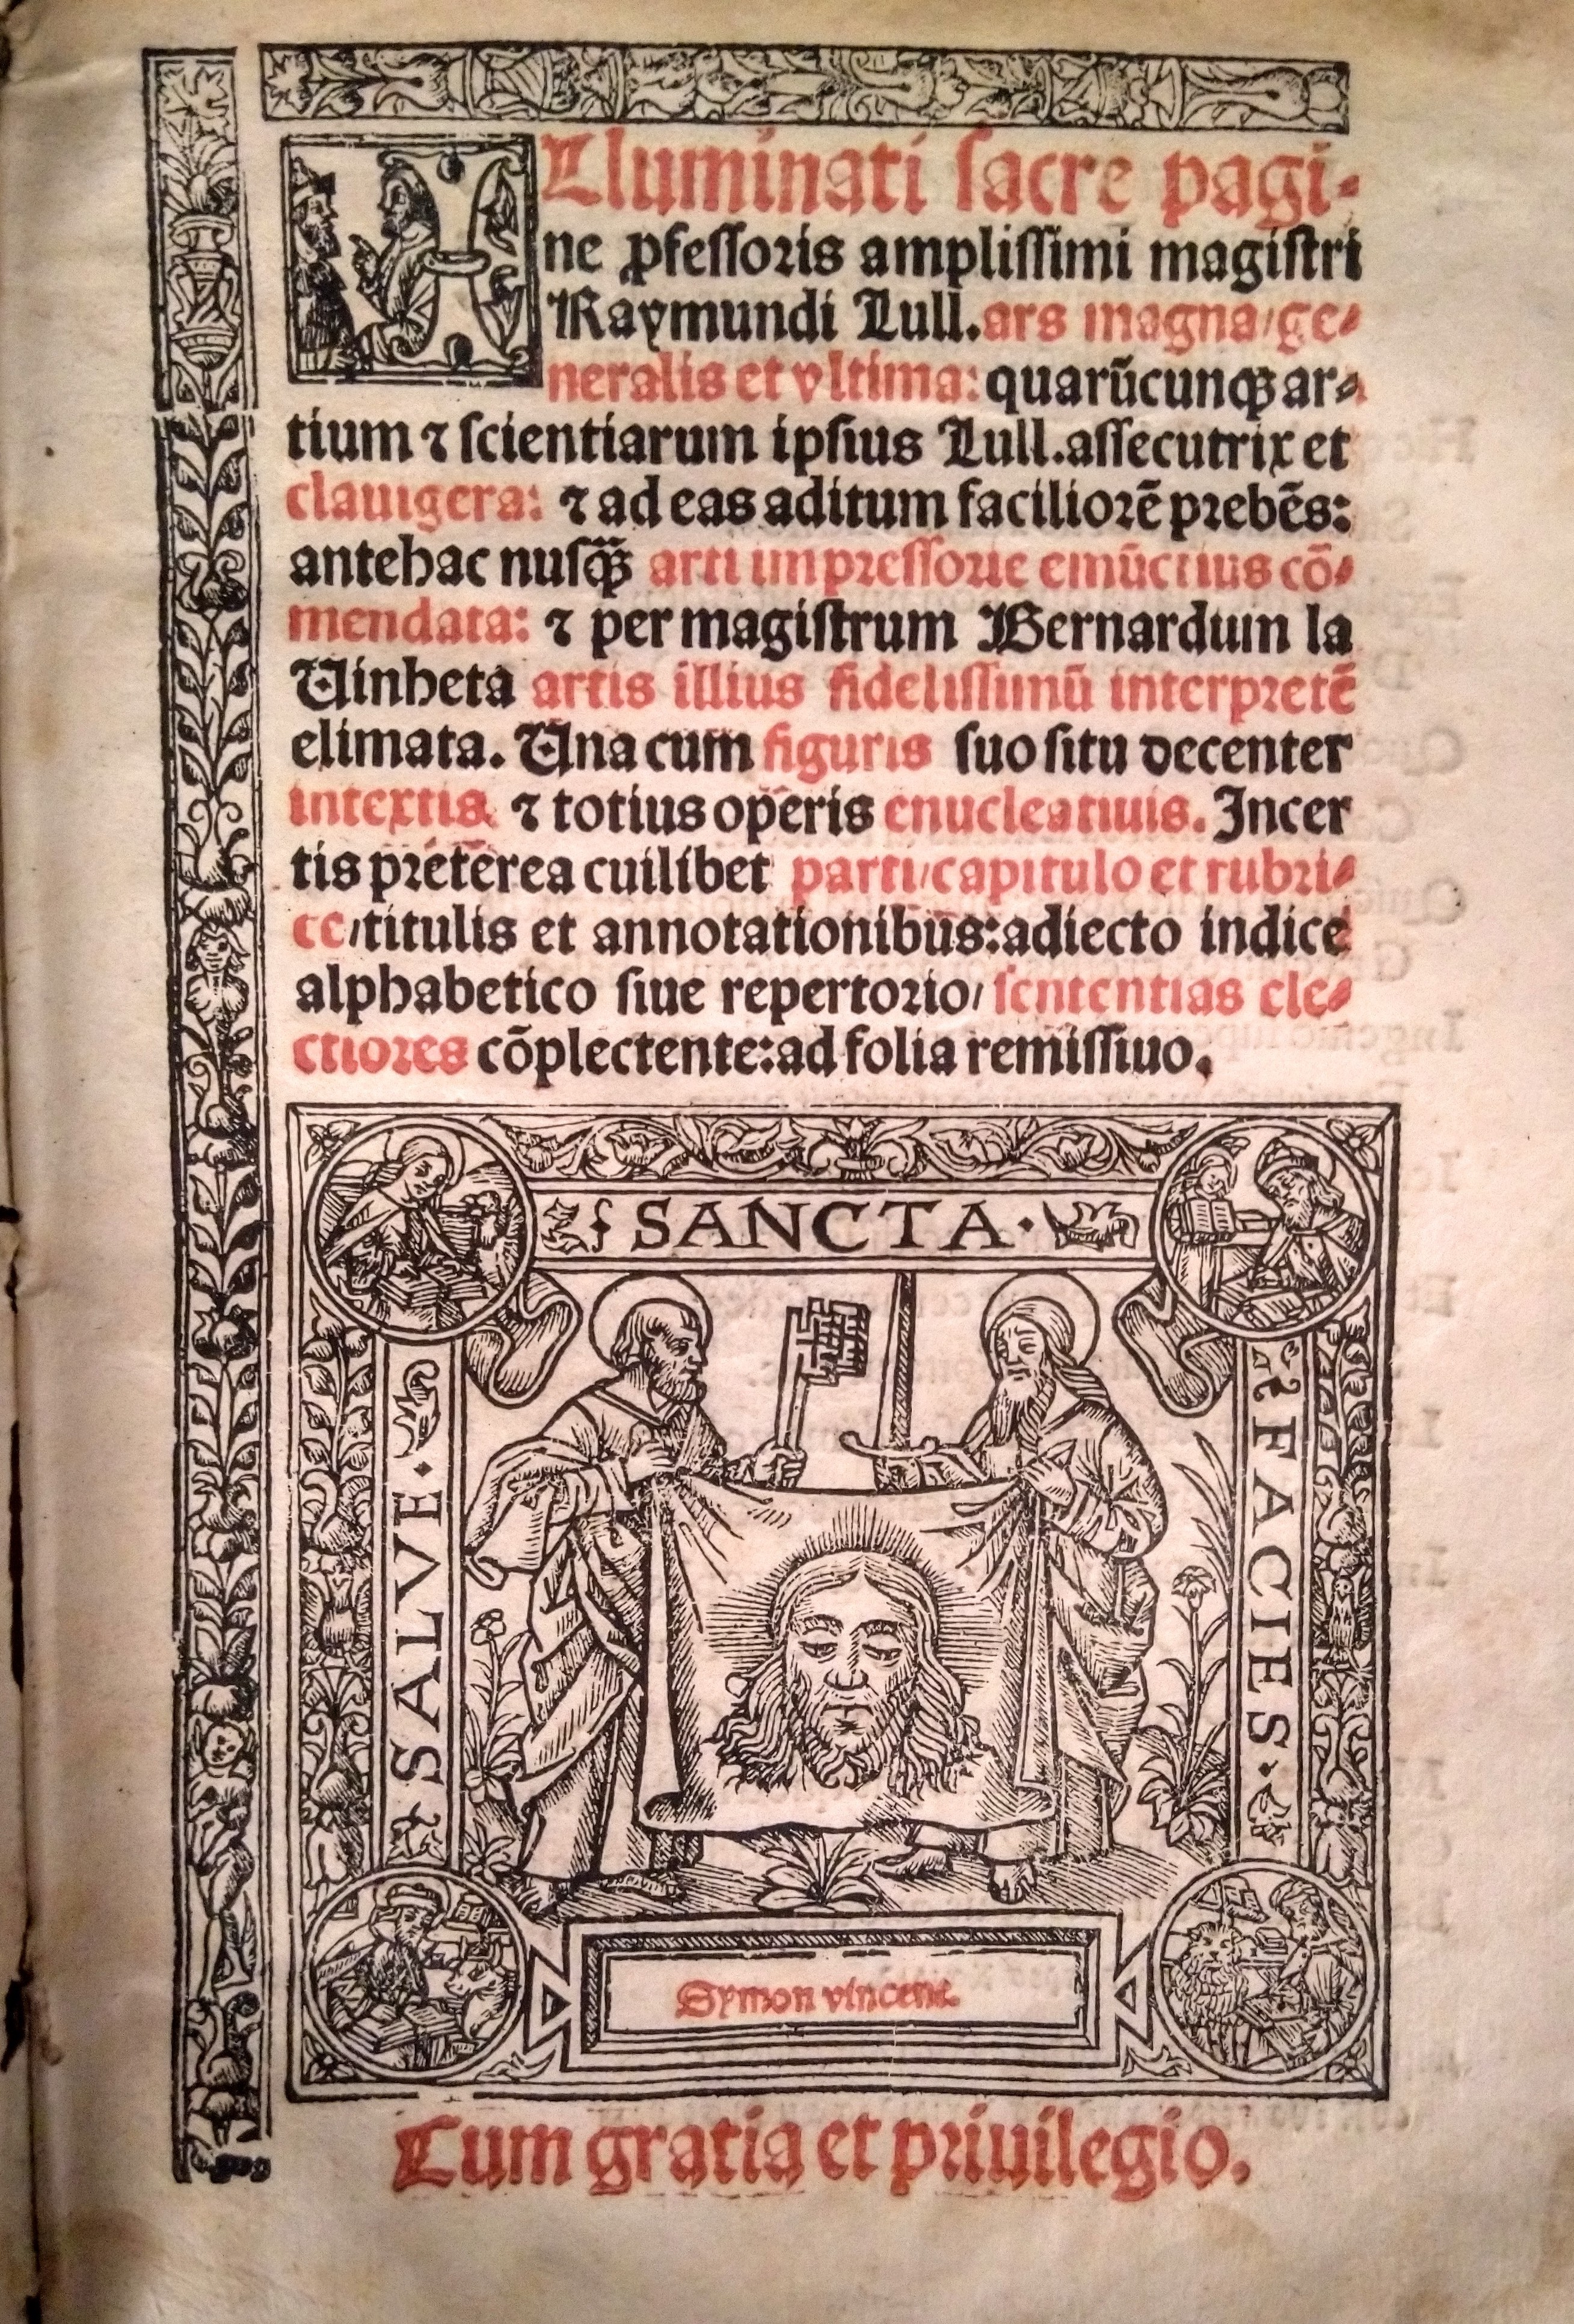 ILluminati sacre pagi-
ne ꝓfessoris amplissimi magistri
Raymundi Lull. ars magna/ge-
neralis et vltima: quarūcunqꝫ ar-
tium ⁊ scientiarum ipsius Lull. assecutrix et
clauigera: ⁊ ad eas aditum faciliorē prebēs:
antehac nusqꝫ arti impressorie emūctius cō-
mendata: ⁊ per magistrum Bernardum la
Vinheta artis illius fidelissimū interpretē
elimata. Una cum figuris suo situ decenter
intextis ⁊ totius operis enucleatiuis. Incer
tis preterea cuilibet parti/capitulo et rubri-
ce/titulis et annotationibus: adiecto indice
alphabetico siue repertorio/sententias ele-
ctiores cōplectente: ad folia remissiuo.
SALVE·
SANCTA·
FACIES·
Symon vincent.
Cum gratia et priuilegio.